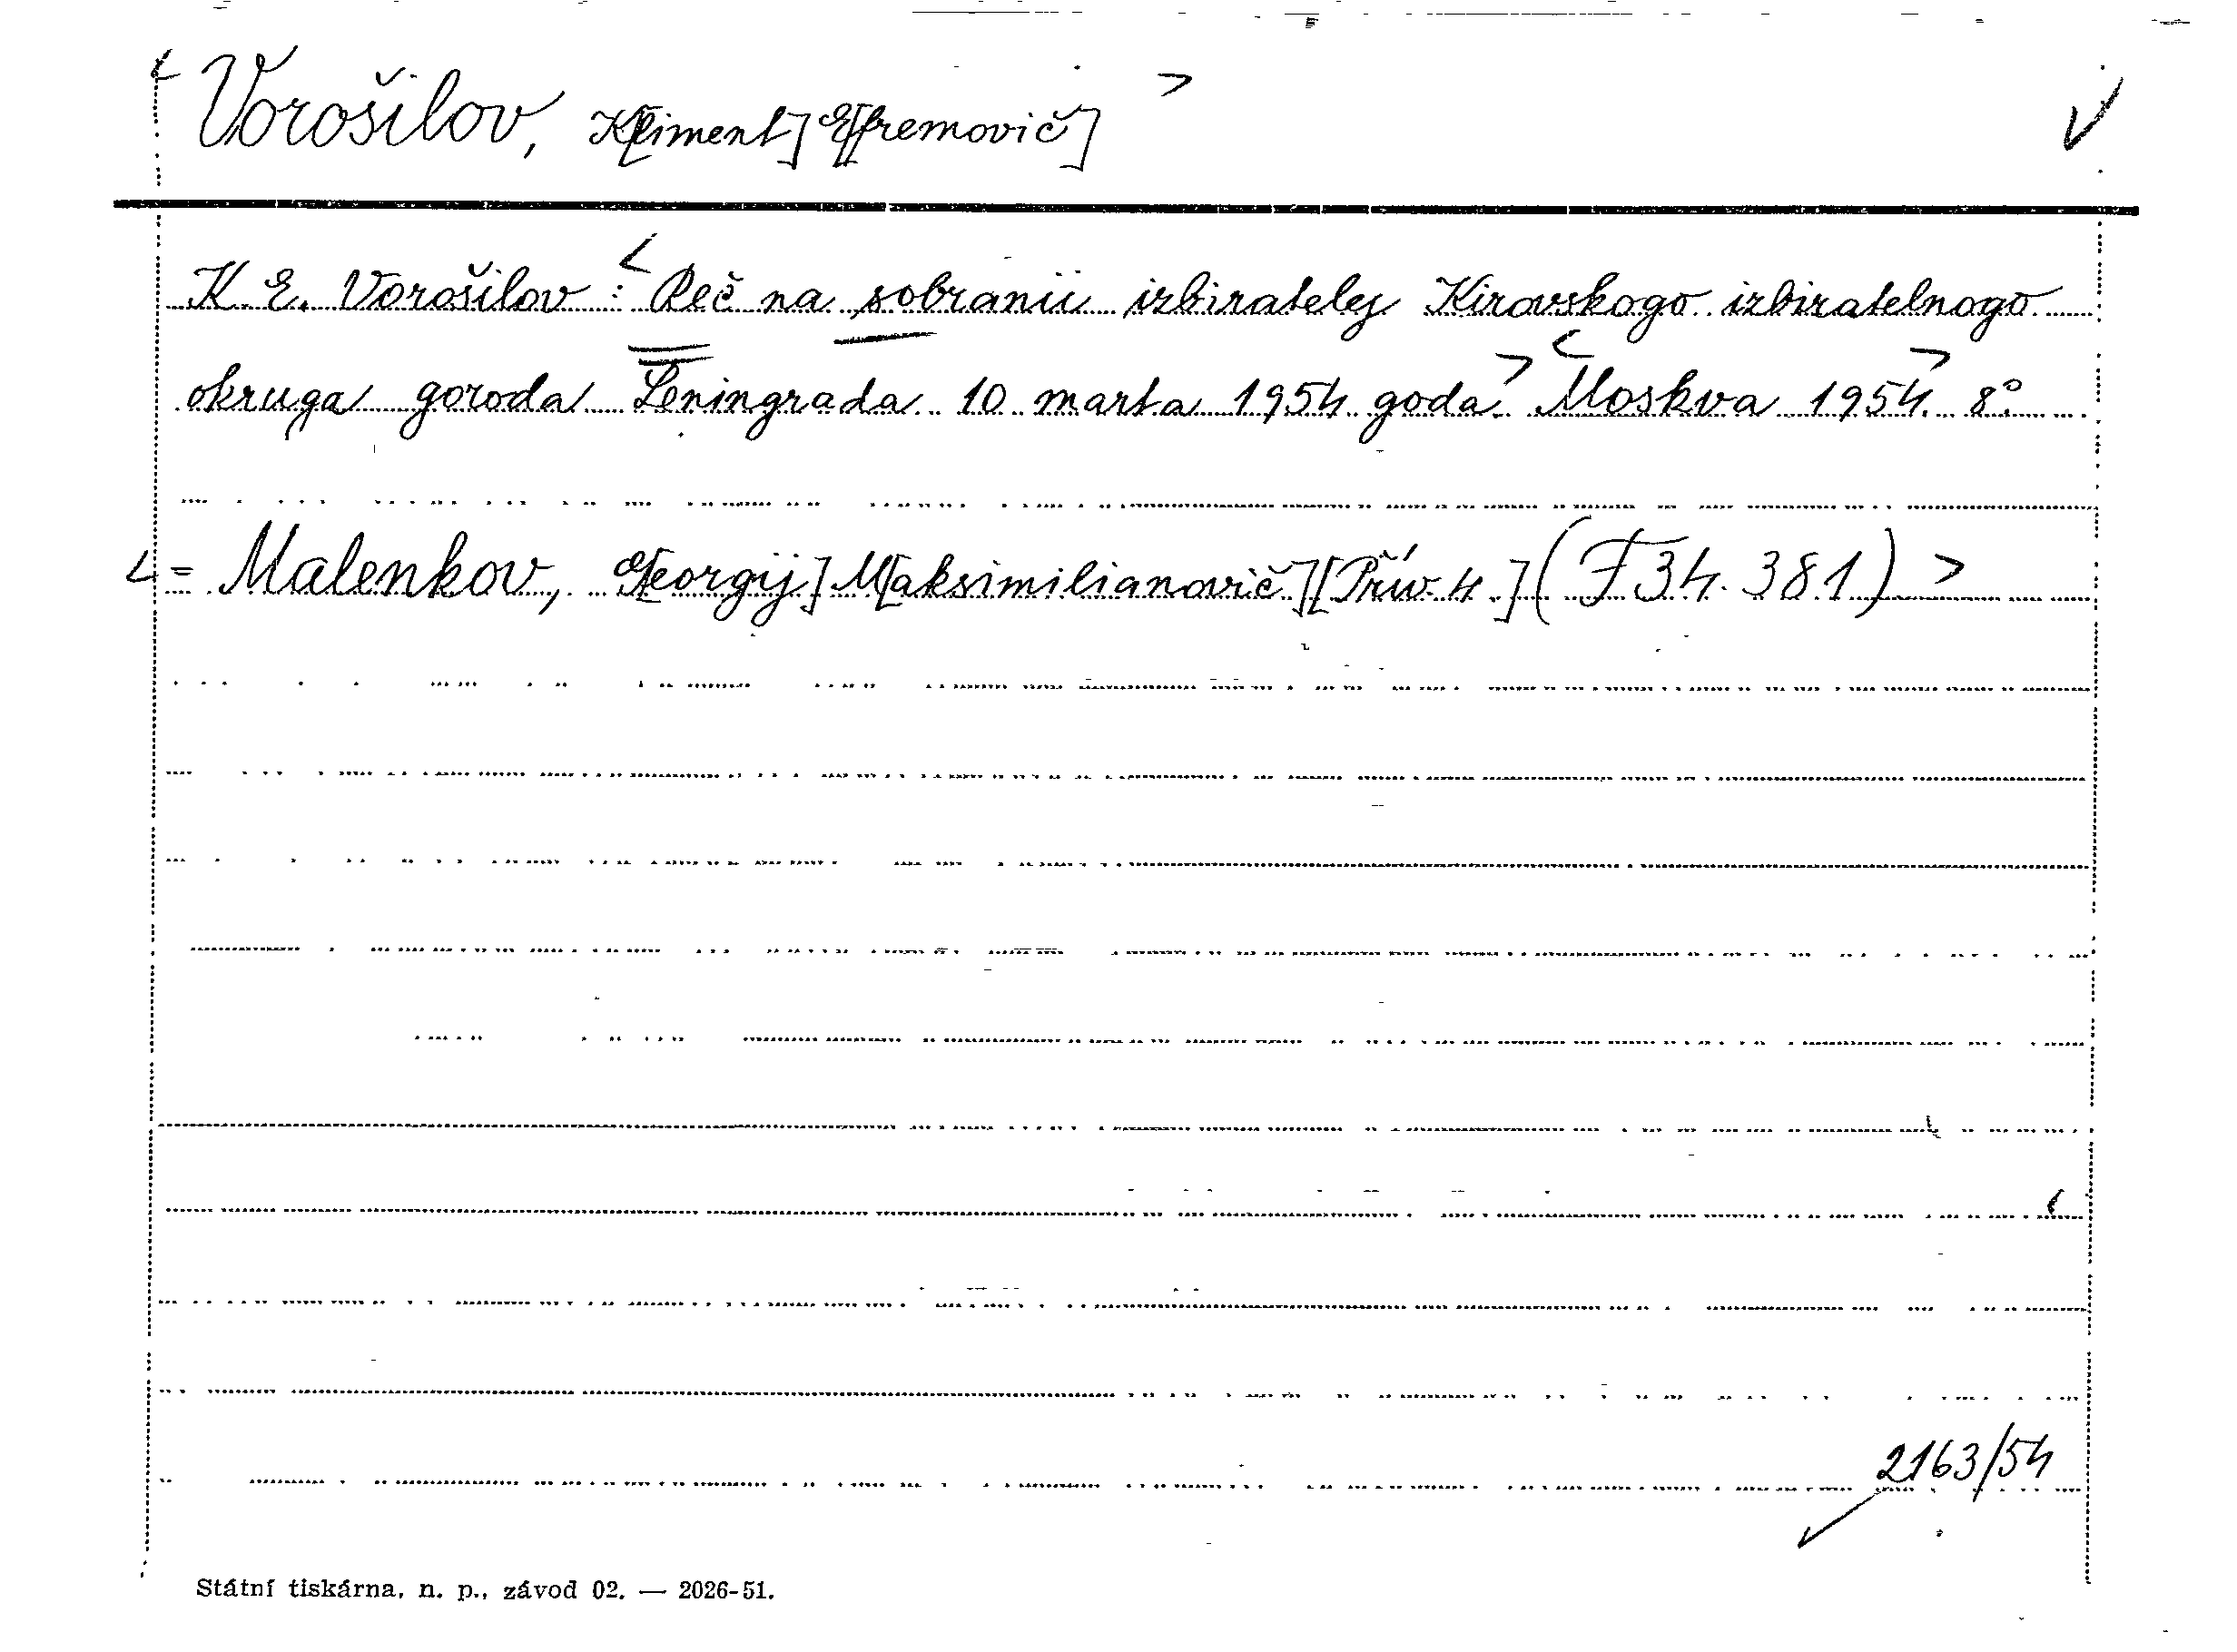 < Vorošilov, K[liment] E[fremovič] >
K. E. Vorošilov: < Reč na sobranii izbiratelej Kirovskogo izbiratelnogo
okruga goroda Leningrada 10 marta 1954 goda. > < Moskva 1954. > 8°.
< = Malenkov, G[eorgij] M[aksimilianovič] [Přív. 4.] (F 34.381) >
2163/54
Státní tiskárna, n. p., závod 02. — 2026-51.